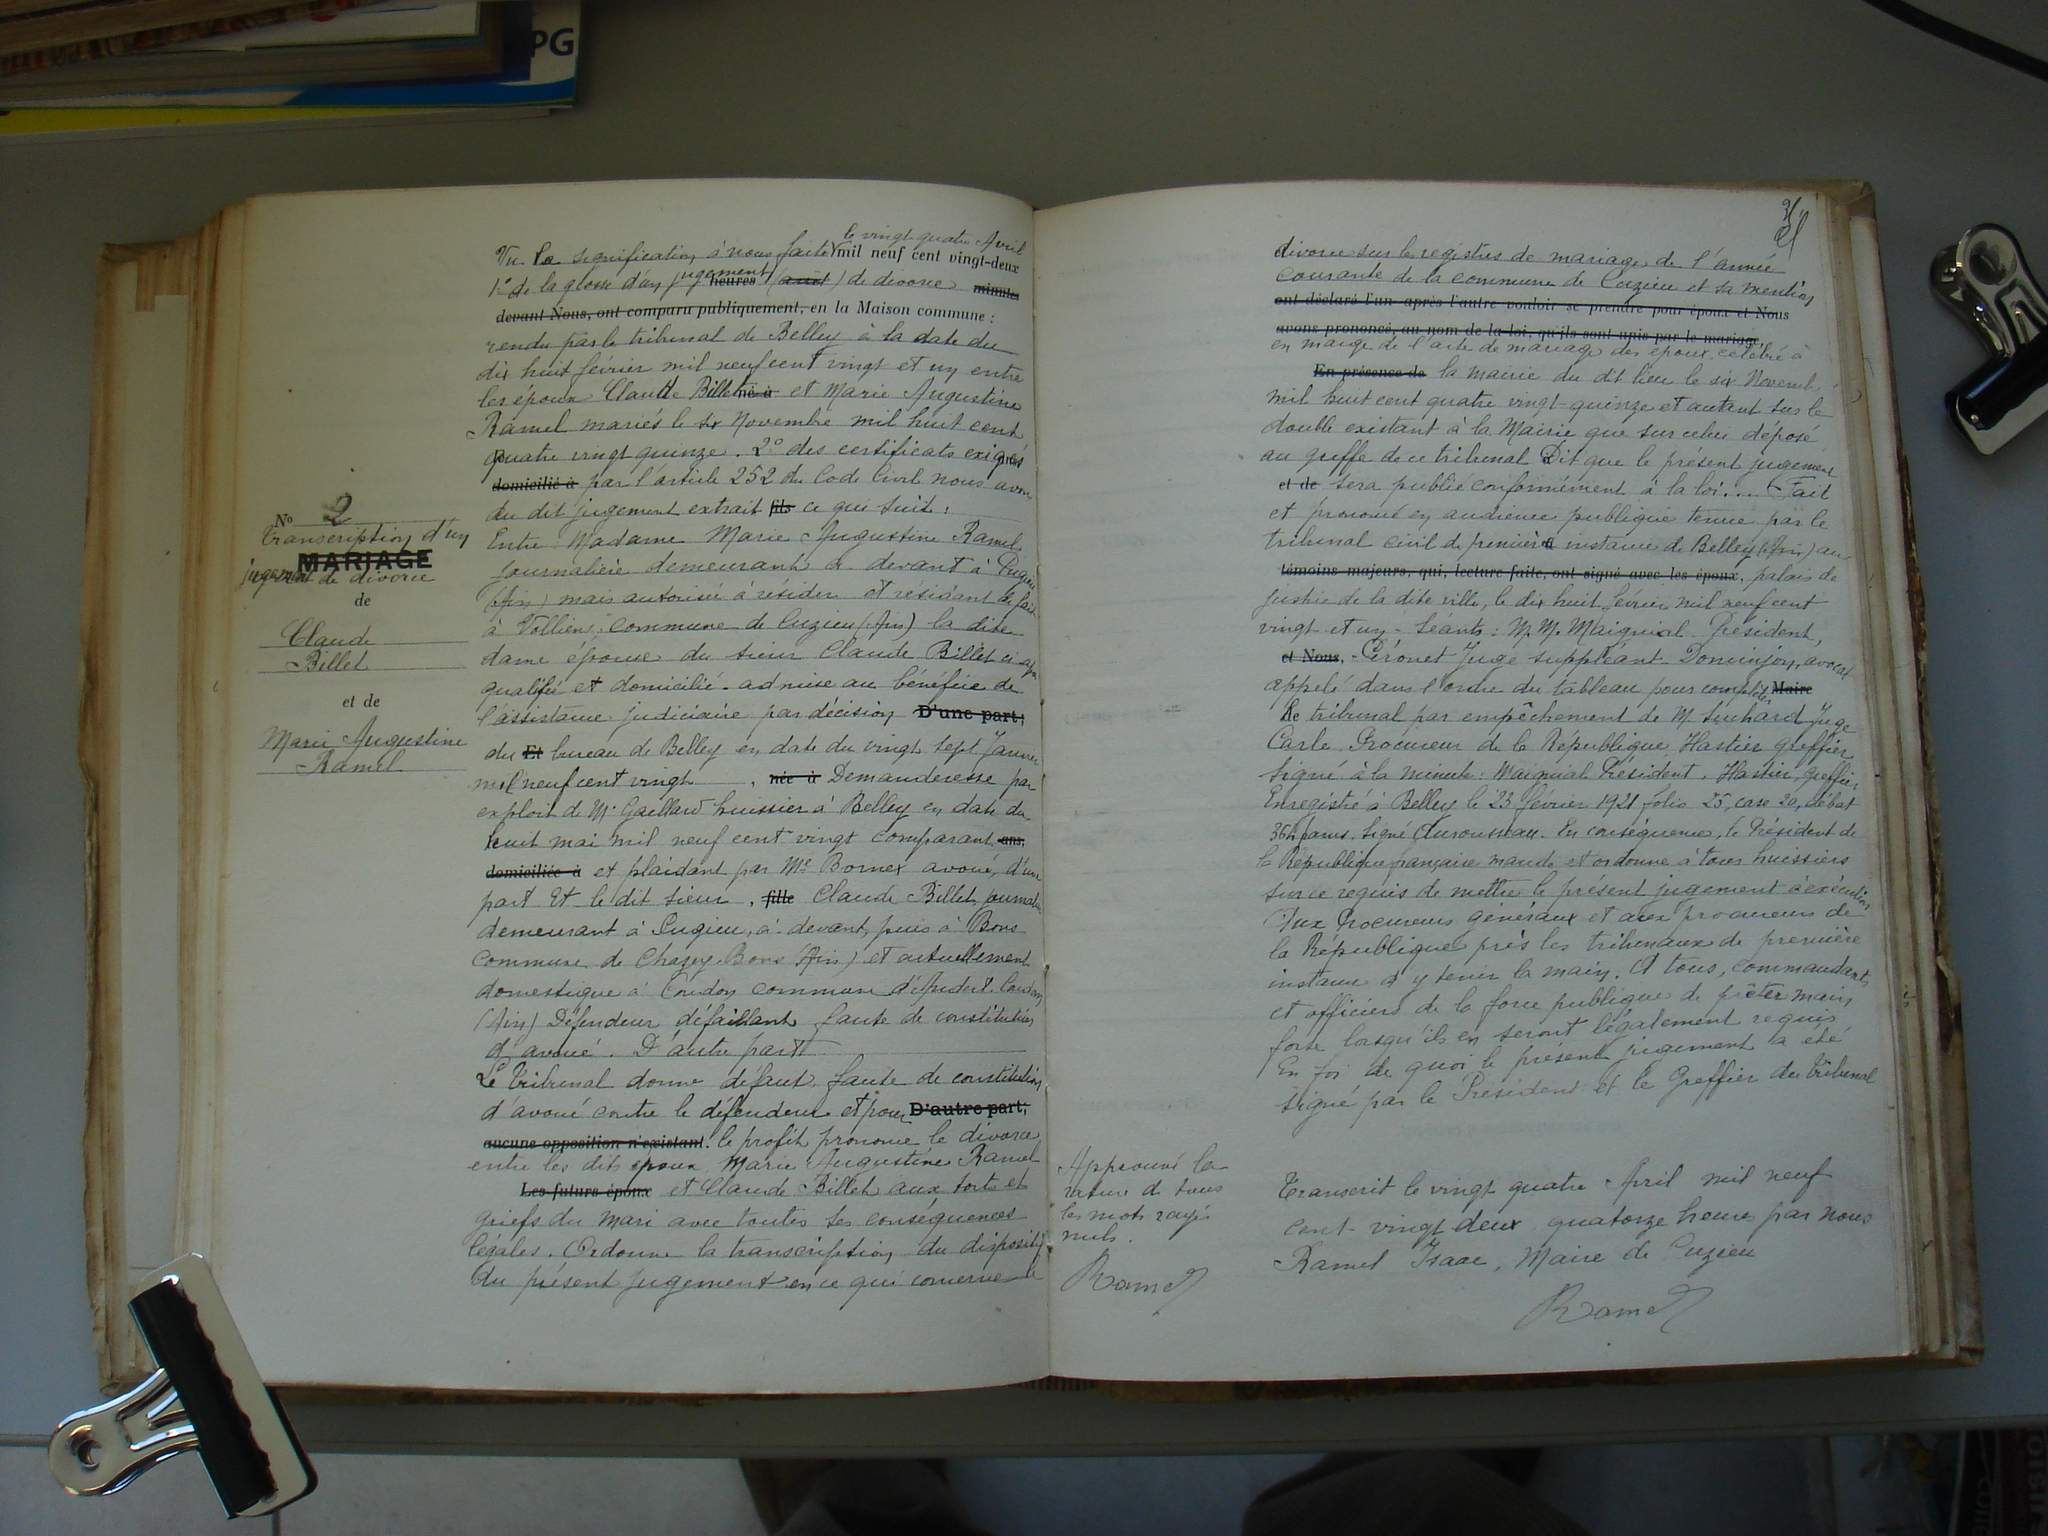 PG
N° 2
transcription d'un
MARIAGE
jugement de divorce
de
Claude
Billet
et de
Marie Augustine
Ramel
le vingt quatre Avril
Vu la signification à nous faite mil neuf cent vingt-deux
1° de la glose d'un jugement heures (acut) de divorce minutes
devant Nous, ont comparu publiquement, en la Maison commune :
rendu par le tribunal de Belley à la date du
dix huit février mil neuf cent vingt et un entre
les époux Claude Billet né à et Marie Augustine
Ramel mariés le six Novembre mil huit cent
quatre vingt quinze. 2° des certificats exigés
domicilié à par l'article 252 du Code Civil nous avons
du dit jugement extrait fils ce qui suit :
Entre Madame Marie Augustine Ramel
journalière demeurant ci devant à Pugieu
(Ain) mais autorisée à résider et résidant de fait
à Volliens, commune de Cuzieu (Ain) la dite
dame épouse du sieur Claude Billet ci-après
qualifié et domicilié. admise au bénéfice de
l'assistance judiciaire par décision D'une part;
du Et bureau de Belley en date du vingt sept Janvier
mil neuf cent vingt , née à Demanderesse par
exploit de Me Gaillard huissier à Belley en date du
huit mai mil neuf cent vingt comparant ans,
domiciliée à et plaidant par Me Bornex avoué, d'une
part Et le dit sieur , fille Claude Billet, journalier
demeurant à Pugieu, ci-devant, puis à Bons
commune de Chazey-Bons (Ain) et actuellement
domestique à Coudon commune d'Andert-Coudon
(Ain) Défendeur défaillant faute de constitution
d'avoué. D'autre part
Le Tribunal donne défaut, faute de constitution
d'avoué contre le défendeur et pour D'autre part;
aucune opposition n'existant. le profit prononce le divorce
entre les dits époux Marie Augustine Ramel
Les futurs époux et Claude Billet aux torts et
griefs du mari avec toutes ses conséquences
légales. Ordonne la transcription du dispositif
du présent jugement en ce qui concerne le
divorce sur les registres de mariage de l'année
courante de la commune de Cuzieu et sa mention
ont déclaré l'un après l'autre vouloir se prendre pour époux et Nous
avons prononcé, au nom de la loi, qu'ils sont unis par le mariage.
en marge de l'acte de mariage des époux, célébré à
En présence de la mairie du dit lieu le six Novemb.
mil huit cent quatre vingt-quinze et autant sur le
double existant à la Mairie que sur celui déposé
au greffe de ce tribunal Dit que le présent jugement
et de sera publié conformément à la loi.... Fait
et prononcé en audience publique tenue par le
tribunal civil de première instance de Belley (Ain) au
témoins majeurs, qui, lecture faite, ont signé avec les époux. palais de
justice de la dite ville, le dix huit février mil neuf cent
vingt et un. Seants : M. M. Maignial Président,
et Nous, Péronet Juge suppléant. Dominjon, avocat
appelé dans l'ordre du tableau pour compléter Maire
le tribunal par empêchement de M. Suchard Juge
Carle Procureur de la République Hastier greffier
Signé à la minute : Maignial Président. Hastier, greffier
Enregistré à Belley le 23 février 1921 folio 25, case 20, débet
signé. En conséquence, le Président de
la République française mande et ordonne à tous huissiers
sur ce requis de mettre le présent jugement à exécution
Aux Procureurs généraux et aux procureurs de
la République près les tribunaux de première
instance d'y tenir la main. A tous, commandants
et officiers de la force publique de prêter main
forte lorsqu'ils en seront légalement requis
En foi de quoi le présent jugement a été
signé par le Président et le Greffier du Tribunal
Approuvé la
rature de tous
les mots rayés
nuls.
Ramel
Transcrit le vingt quatre Avril mil neuf
cent vingt deux quatorze heures par nous
Ramel Isaac, Maire de Cuzieu
Ramel